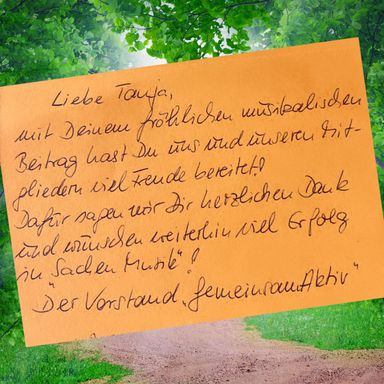 Liebe Tanja,
mit Deinem fröhlichen musikalischen
Beitrag hast Du uns und unseren Mit-
gliedern viel Freude bereitet!
Dafür sagen wir Dir herzlichen Dank
und wünschen weiterhin viel Erfolg
in "Sachen Musik"!
Der Vorstand „GemeinsamAktiv"